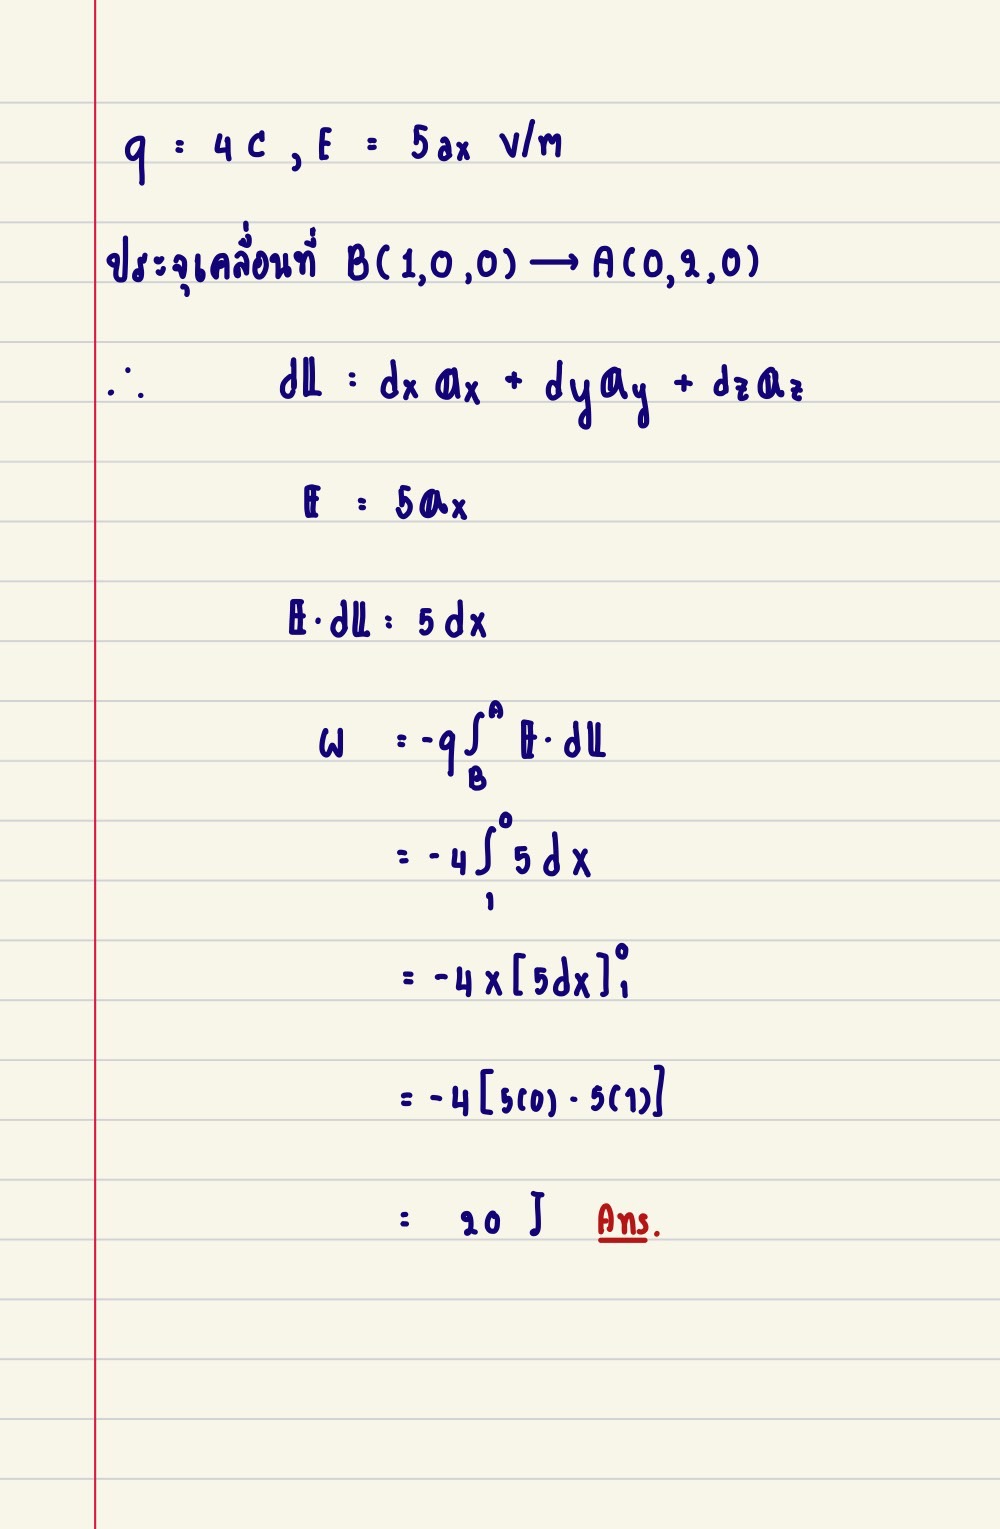 q = 4 C , E = 5ax V/m
ประจุเคลื่อนที่ B(1,0,0) → A(0,2,0)
∴ dL = dx ax + dy ay + dz az
E = 5ax
E · dL = 5 dx
W = -q ∫_B^A E · dL
= -4 ∫_1^0 5 dx
= -4 x [5dx]_1^0
= -4 [5(0) - 5(1)]
= 20 J Ans.